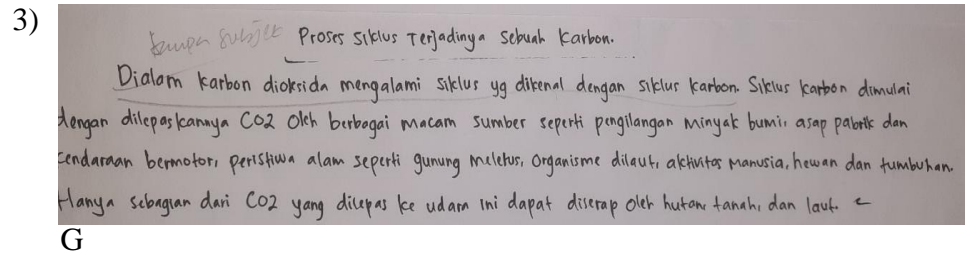 3)
tanpa subjek Proses siklus Terjadinya sebuah karbon.
Dialam karbon dioksida mengalami siklus yg dikenal dengan siklus karbon. Siklus karbon dimulai
dengan dilepaskannya CO2 Oleh berbagai macam sumber seperti pengilangan minyak bumi, asap pabrik dan
cendaraan bermotor, peristiwa alam seperti gunung meletus, organisme dilaut, aktivitas manusia, hewan dan tumbuhan.
Hanya sebagian dari CO2 yang dilepas ke udara ini dapat diserap oleh hutan, tanah, dan laut.
G